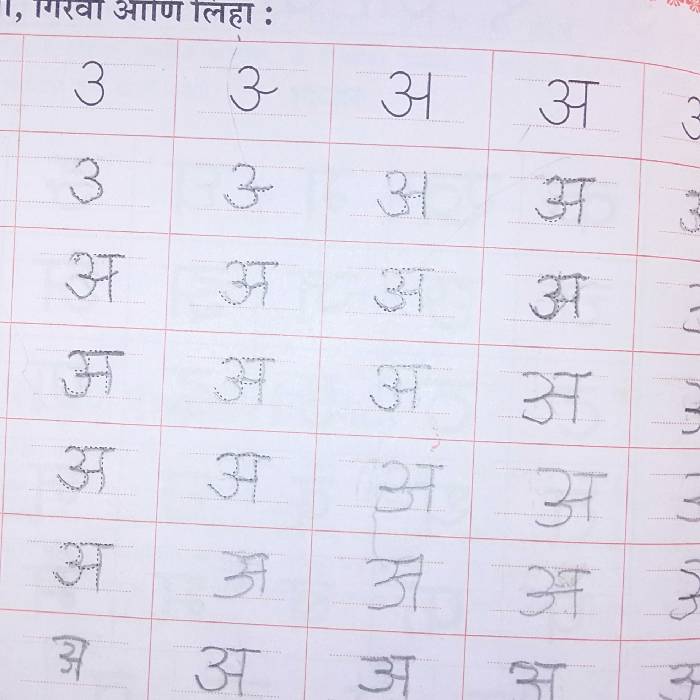 गिरवा आणि लिहा :
3 अ अ
अ अ
अ अ अ अ
अ अ अ अ
अ अ अ अ
अ अ अ अ
अ अ अ अ